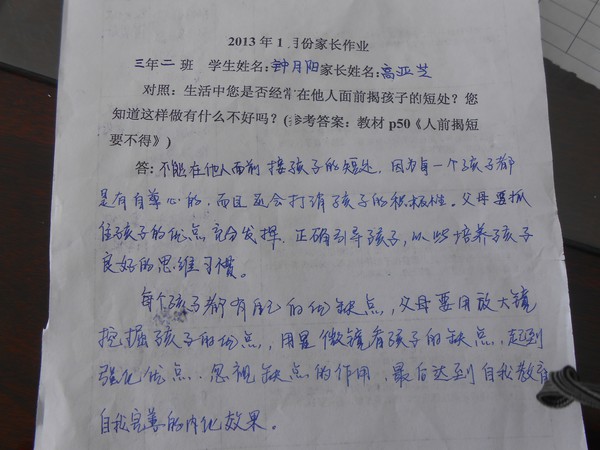 2013年1月份家长作业
三年二班 学生姓名:钟月阳家长姓名:高亚芝
对照：生活中您是否经常在他人面前揭孩子的短处？您
知道这样做有什么不好吗？(参考答案：教材 p50《人前揭短
要不得》)
答:不能在他人面前接孩子的短处，因为每一个孩子都
是有自尊心的，而且还会打消孩子的积极性。父母要抓
住孩子的优点充分发挥，正确引导孩子，以些培养孩子
良好的思维习惯。
每个孩子都有自己的优缺点，父母要用放大镜
挖掘孩子的优点，用显微镜看孩子的缺点，起到
强化优点，忽视缺点的作用，最后达到自我教育
自我完善的内化效果。